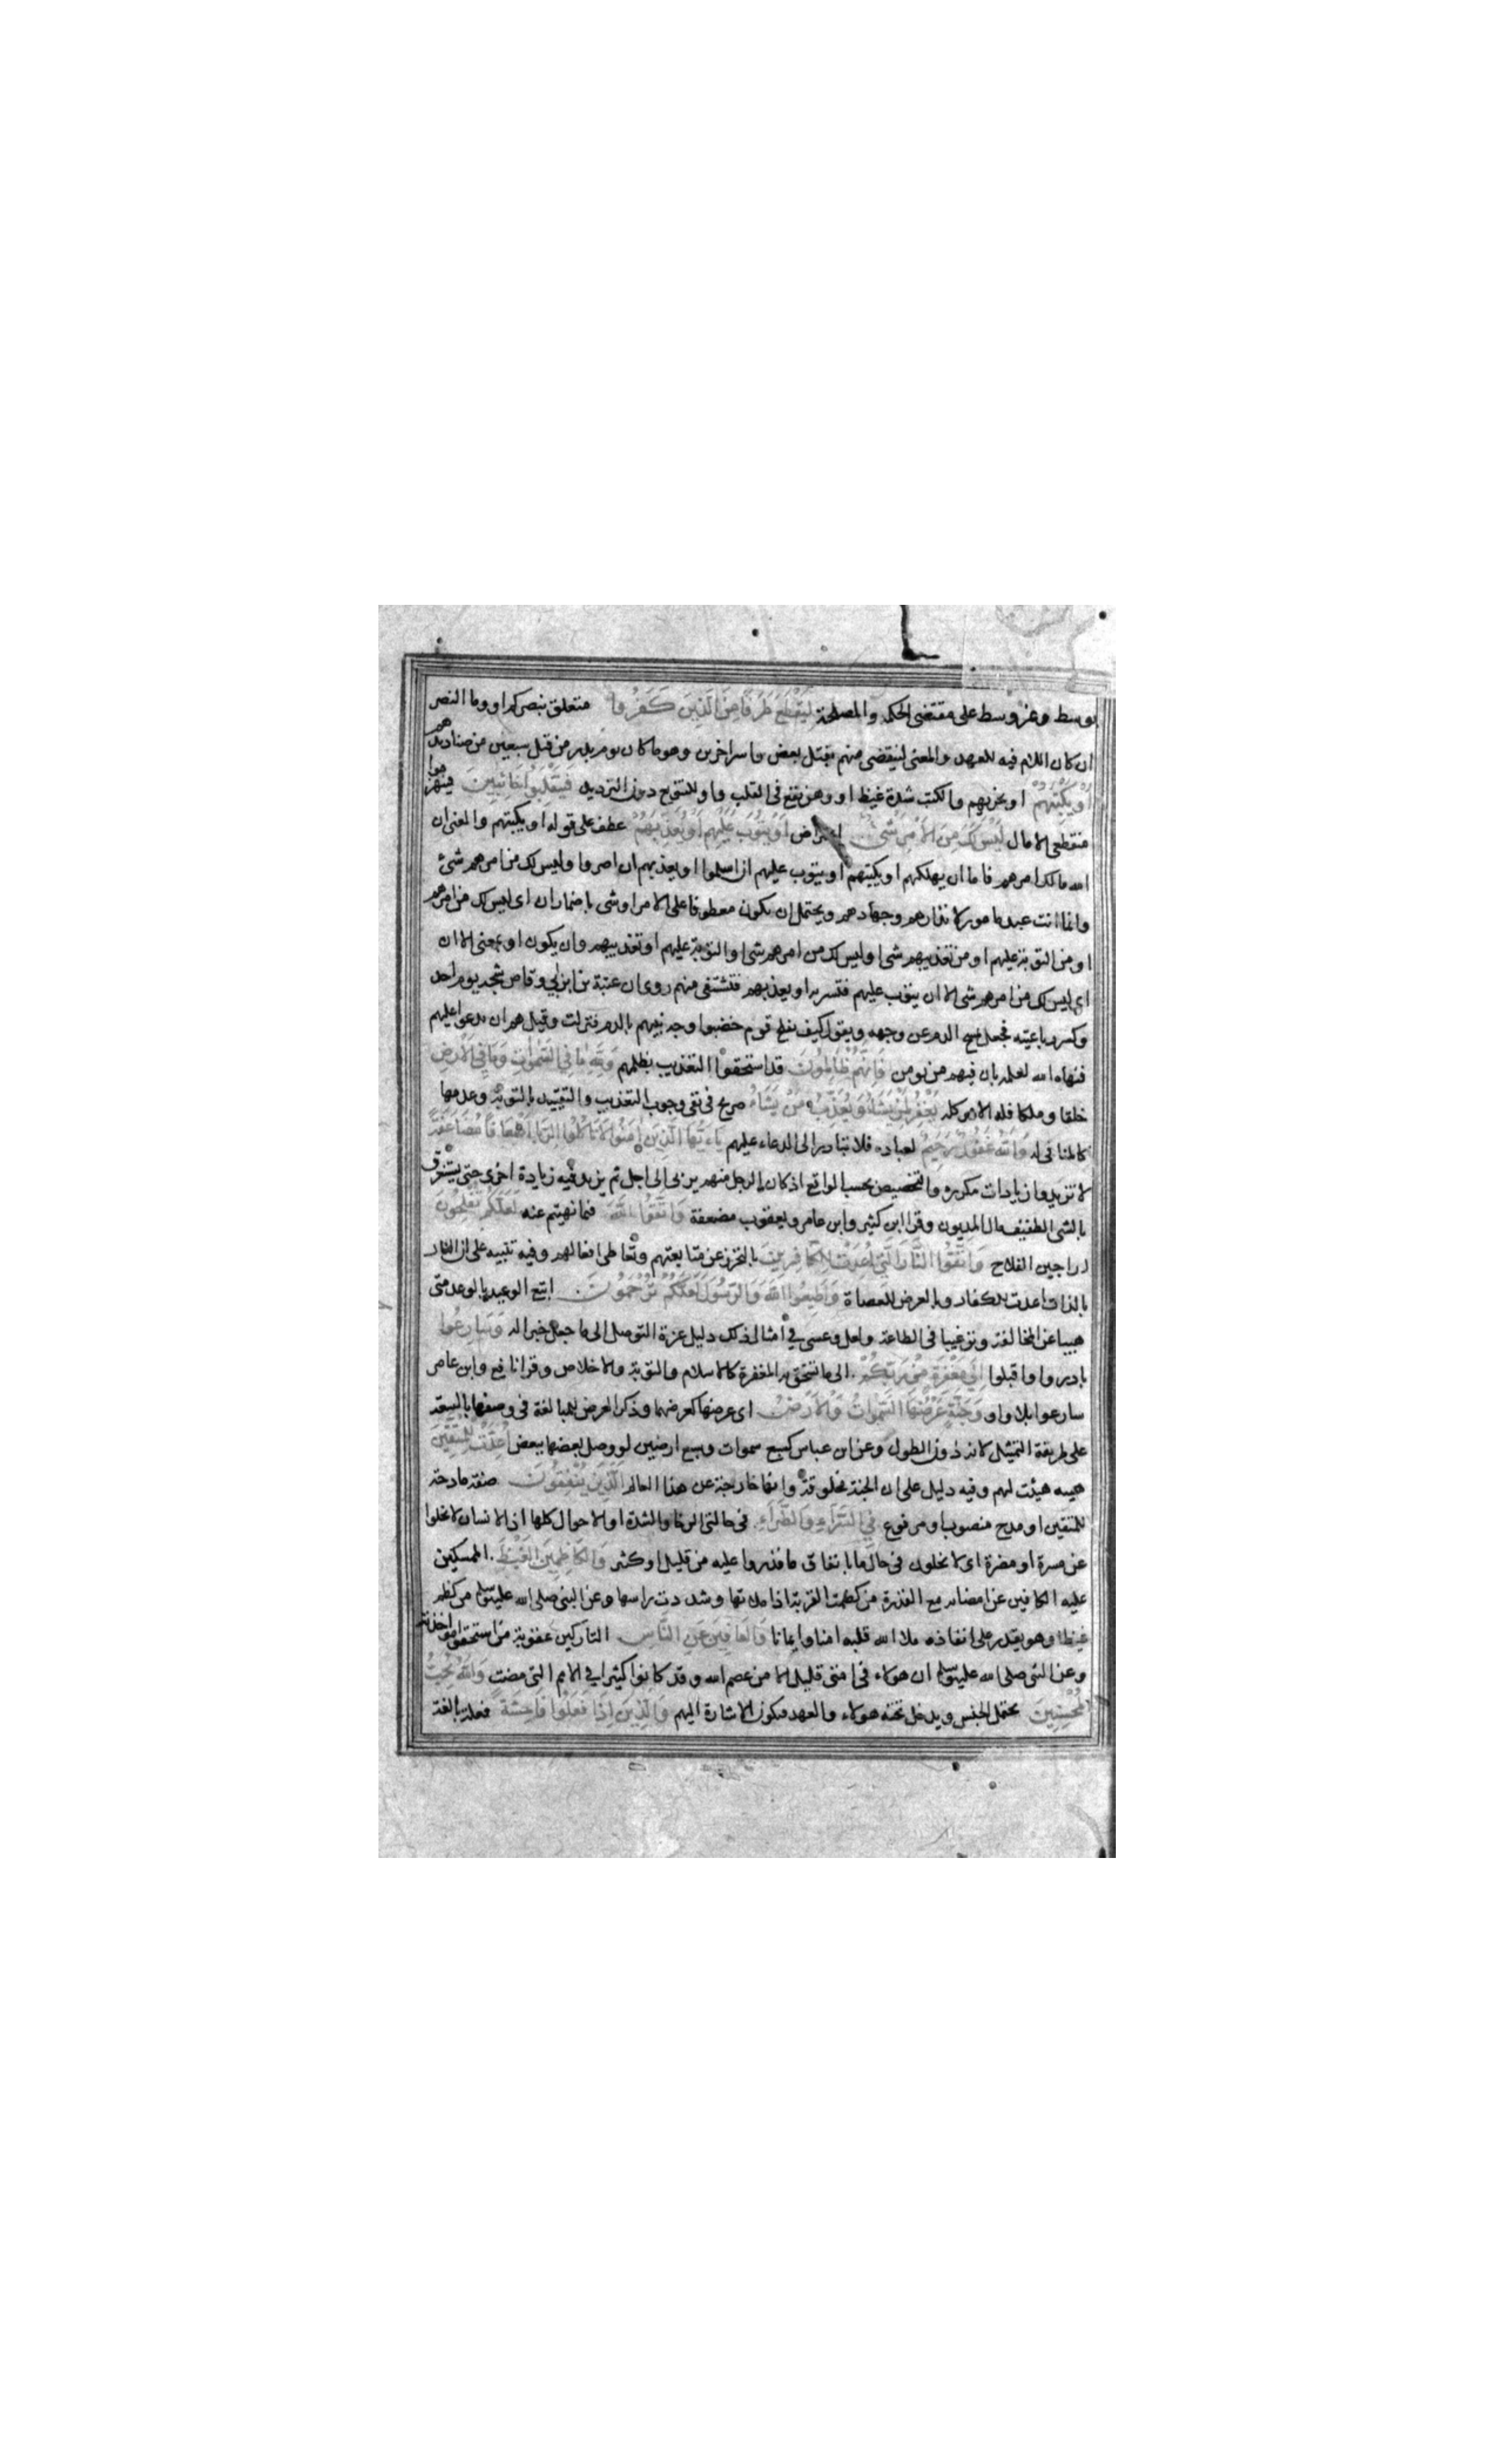 بوسط وغير وسط على مقتضى الحكمة والمصلحة لِيَقْطَعَ طَرَفًا مِنَ الَّذِينَ كَفَرُوا متعلق بنصركم او وما النصر
ان كان اللام فيه للعهد والمعنى لينقض منهم بقتل بعض واسر اخرين وهو ما كان يوم بدر من قتل سبعين من صناديدهم
أَوْ يَكْبِتَهُمْ او يخزيهم والكبت شدة غيظ او وهن يقع في القلب واو للتنويع دون الترديد فَيَنْقَلِبُوا خَائِبِينَ فينهزموا
منقطعي الامال لَيْسَ لَكَ مِنَ الْأَمْرِ شَيْءٌ اعتراض أَوْ يَتُوبَ عَلَيْهِمْ أَوْ يُعَذِّبَهُمْ عطف على قوله او يكبتهم والمعنى ان
الله مالك امرهم فاما ان يهلكهم او يكبتهم او يتوب عليهم ان اسلموا او يعذبهم ان اصروا وليس لك من امرهم شئ
وانما انت عبد مامور لانذارهم وجهادهم ويحتمل ان يكون معطوفا على الامر او شئ باضمار ان اى ليس لك من امرهم
او من التوبة عليهم او من تعذيبهم شئ او ليس لك من امرهم شئ او التوبة عليهم او تعذيبهم وان يكون او بمعنى الا ان
اى ليس لك من امرهم شئ الا ان يتوب عليهم فتسر به او يعذبهم فتشتفى منهم روى ان عتبة بن ابي وقاص شجه يوم احد
وكسر رباعيته فجعل يمسح الدم عن وجهه ويقول كيف يفلح قوم خضبوا وجه نبيهم بالدم فنزلت وقيل هم ان يدعو عليهم
فنهاه الله لعلمه بان فيهم من يومن فَإِنَّهُمْ ظَالِمُونَ قد استحقوا التعذيب بظلمهم وَلِلَّهِ مَا فِي السَّمَوَاتِ وَمَا فِي الْأَرْضِ
خلقا وملكا فله الامر كله يَغْفِرُ لِمَنْ يَشَاءُ وَيُعَذِّبُ مَنْ يَشَاءُ صريح في نفى وجوب التعذيب والتقييد بالتوبة وعدمها
كالمنافى له وَاللَّهُ غَفُورٌ رَحِيمٌ لعباده فلا تبادر الى الدعاء عليهم يَا أَيُّهَا الَّذِينَ آمَنُوا لَا تَأْكُلُوا الرِّبَا أَضْعَافًا مُضَاعَفَةً
لا تزيدوا زيادات مكررة والتخصيص بحسب الواقع اذ كان الرجل منهم يربى الى اجل ثم يزيد فيه زيادة اخرى حتى يستغرق
بالشئ الطفيف مال المديون وقرا ابن كثير وابن عامر ويعقوب مضعفة وَاتَّقُوا اللَّهَ فيما نهيتم عنه لَعَلَّكُمْ تُفْلِحُونَ
راجين الفلاح وَاتَّقُوا النَّارَ الَّتِي أُعِدَّتْ لِلْكَافِرِينَ بالتحرز عن متابعتهم وتعاطى افعالهم وفيه تنبيه على ان النار
بالذات اعدت للكفار وبالعرض للعصاة وَأَطِيعُوا اللَّهَ وَالرَّسُولَ لَعَلَّكُمْ تُرْحَمُونَ اتبع الوعيد بالوعد
هيبا عن المخالفة وترغيبا في الطاعة ولعل وعسى في امثال ذلك دليل عزة التوصل الى ما جعل خبرا له وَسَارِعُوا
بادروا واقبلوا إِلَى مَغْفِرَةٍ مِنْ رَبِّكُمْ الى ما تستحق به المغفرة كالاسلام والتوبة والاخلاص وقرا نافع وابن عامر
سارعوا بلا واو وَجَنَّةٍ عَرْضُهَا السَّمَوَاتُ وَالْأَرْضُ اى عرضها كعرضهما وذكر العرض للمبالغة في وصفها بالسعة
على طريقة التمثيل لانه دون الطول وعن ابن عباس كسبع سموات وسبع ارضين لو وصل بعضها ببعض أُعِدَّتْ لِلْمُتَّقِينَ
هيئت لهم وفيه دليل على ان الجنة مخلوقة وانها خارجة عن هذا العالم الَّذِينَ يُنْفِقُونَ صفة مادحة
للمتقين او مدح منصوب او مرفوع فِي السَّرَّاءِ وَالضَّرَّاءِ في حالتى الرخا والشدة او الاحوال كلها اذ الانسان لا يخلوا
عن مسرة او مضرة اى لا يخلون في حال ما بانفاق ما قدروا عليه من قليل او كثير وَالْكَاظِمِينَ الْغَيْظَ الممسكين
عليه الكافين عن امضائه مع القدرة من كظمت القربة اذا ملاتها وشددت راسها وعن النبي صلى الله عليه وسلم من كظم
غيظا وهو يقدر على انفاذه ملا الله قلبه امنا وايمانا وَالْعَافِينَ عَنِ النَّاسِ التاركين عقوبة من استحقوا مواخذته
وعن النبى صلى الله عليه وسلم ان هولاء في امتى قليل الا من عصم الله وقد كانوا كثيرا في الامم التى مضت وَاللَّهُ يُحِبُّ
الْمُحْسِنِينَ يحتمل الجنس ويدخل تحته هولاء والعهد فيكون الاشارة اليهم وَالَّذِينَ إِذَا فَعَلُوا فَاحِشَةً فعلة بالغة